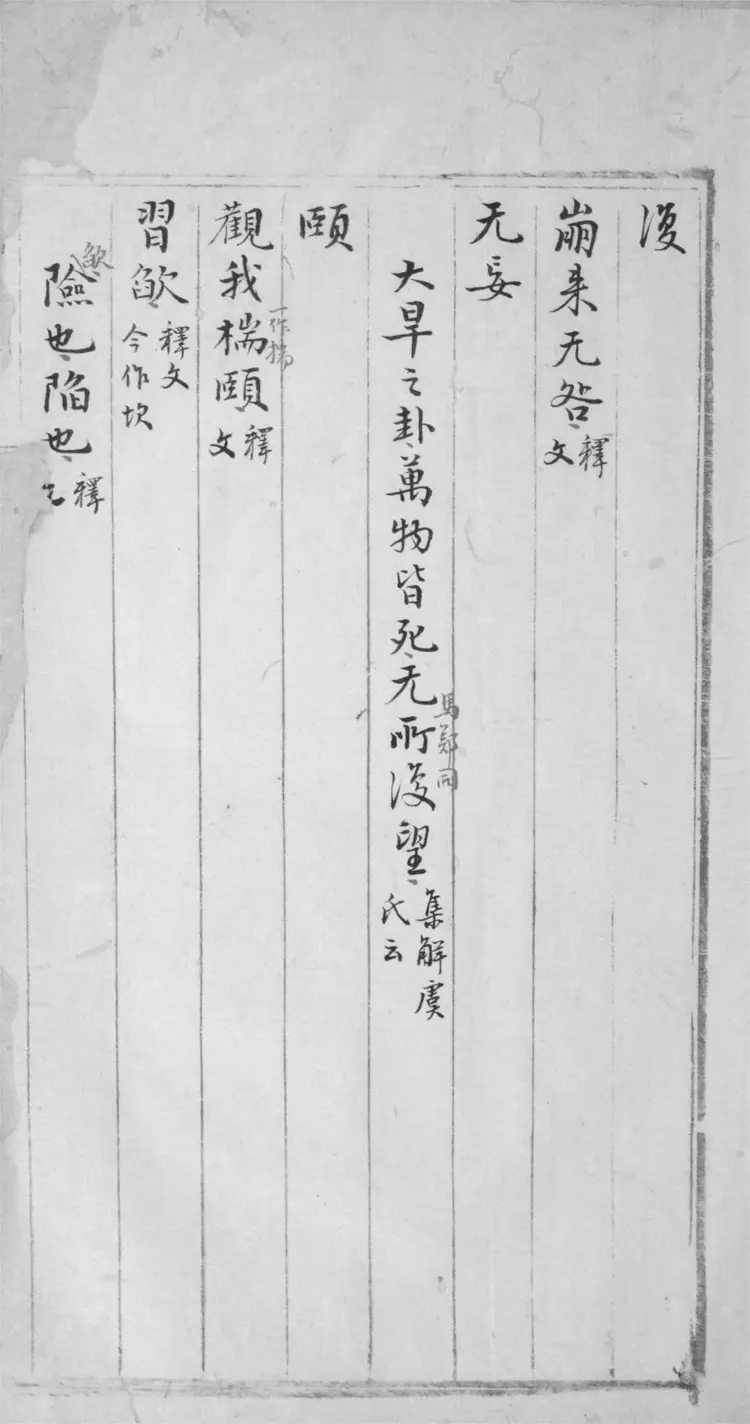 復
崩来无咎 釋文
无妄
大旱之卦萬物皆死无所復望 集解虞氏云
馬鄭同
頤
觀我椯頤 釋文
一作揣
習欿 釋文今作坎
欿
險也陷也 釋